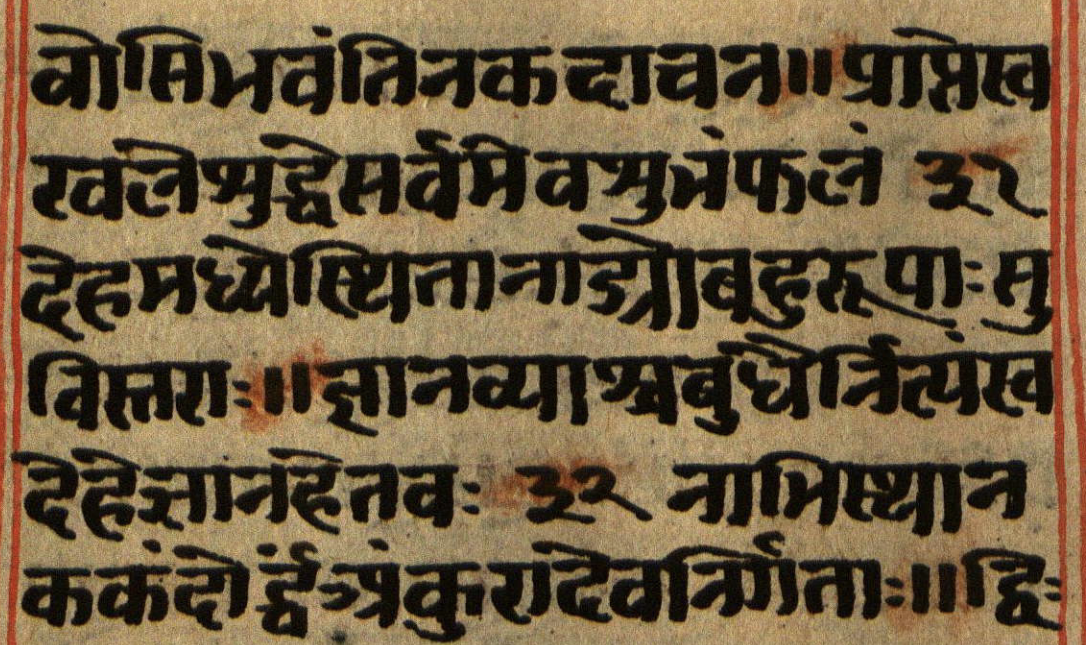 वोसिभवंतिनकदाचन॥प्राप्तेस्व
रवलेशुद्धेसर्वमेवशुभंफलं ३१
देहमध्येस्थितानाड्योबहुरूपाःसु
विस्तराः॥ज्ञानव्याश्चबुधैर्नित्यंस्व
देहेज्ञानहेतवः ३२ नाभिस्थान
ककंदोर्द्ध्वंअंकुरादेवर्निर्गताः॥द्विः